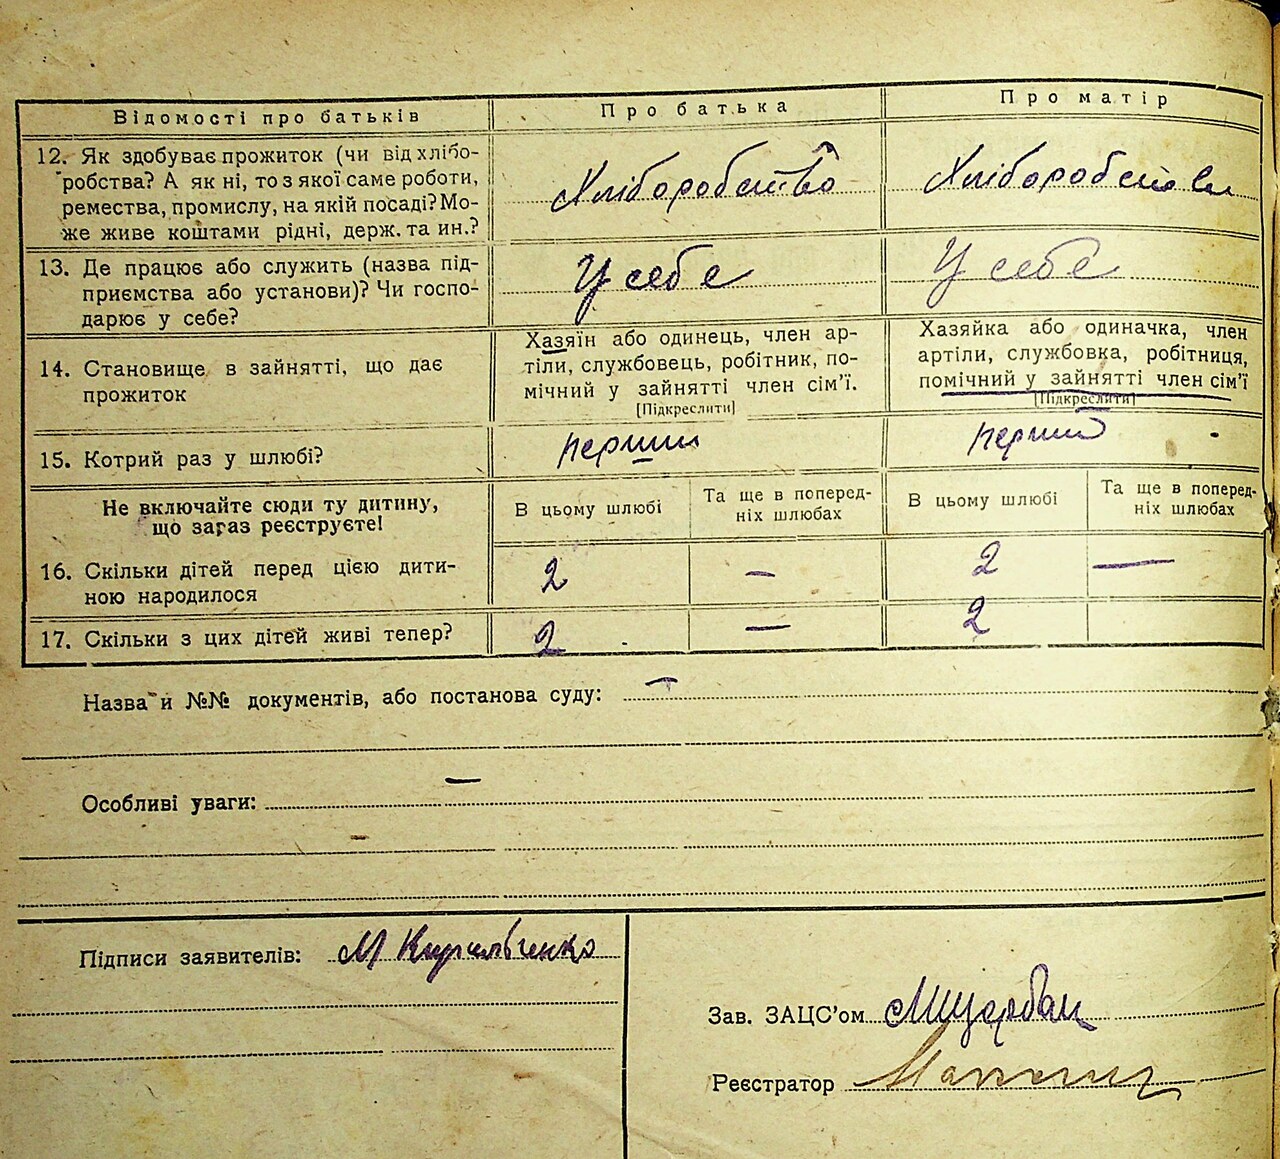 Відомості про батьків
Про батька
Про матір
12. Як здобуває прожиток (чи від хлібо-
робства? А як ні, то з якої саме роботи,
ремества, промислу, на якій посаді? Мо-
же живе коштами рідні, держ. та ин.?
Хліборобство
Хліборобство
13. Де працює або служить (назва під-
приємства або установи)? Чи госпо-
дарює у себе?
У себе
У себе
14. Становище в зайнятті, що дає
прожиток
Хазяїн або одинець, член ар-
тіли, службовець, робітник, по-
мічний у зайнятті член сім'ї.
[Підкреслити]
Хазяйка або одиначка, член
артіли, службовка, робітниця,
помічний у зайнятті член сім'ї
[Підкреслити]
15. Котрий раз у шлюбі?
перший
перший
Не включайте сюди ту дитину,
що зараз реєструєте!
В цьому шлюбі
Та ще в поперед-
ніх шлюбах
В цьому шлюбі
Та ще в поперед-
ніх шлюбах
16. Скільки дітей перед цією дити-
ною народилося
2
—
2
—
17. Скільки з цих дітей живі тепер?
2
—
2
Назва й №№ документів, або постанова суду: —
Особливі уваги: —
Підписи заявителів: М Кирильченко
Зав. ЗАЦС'ом МЩербак
Реєстратор